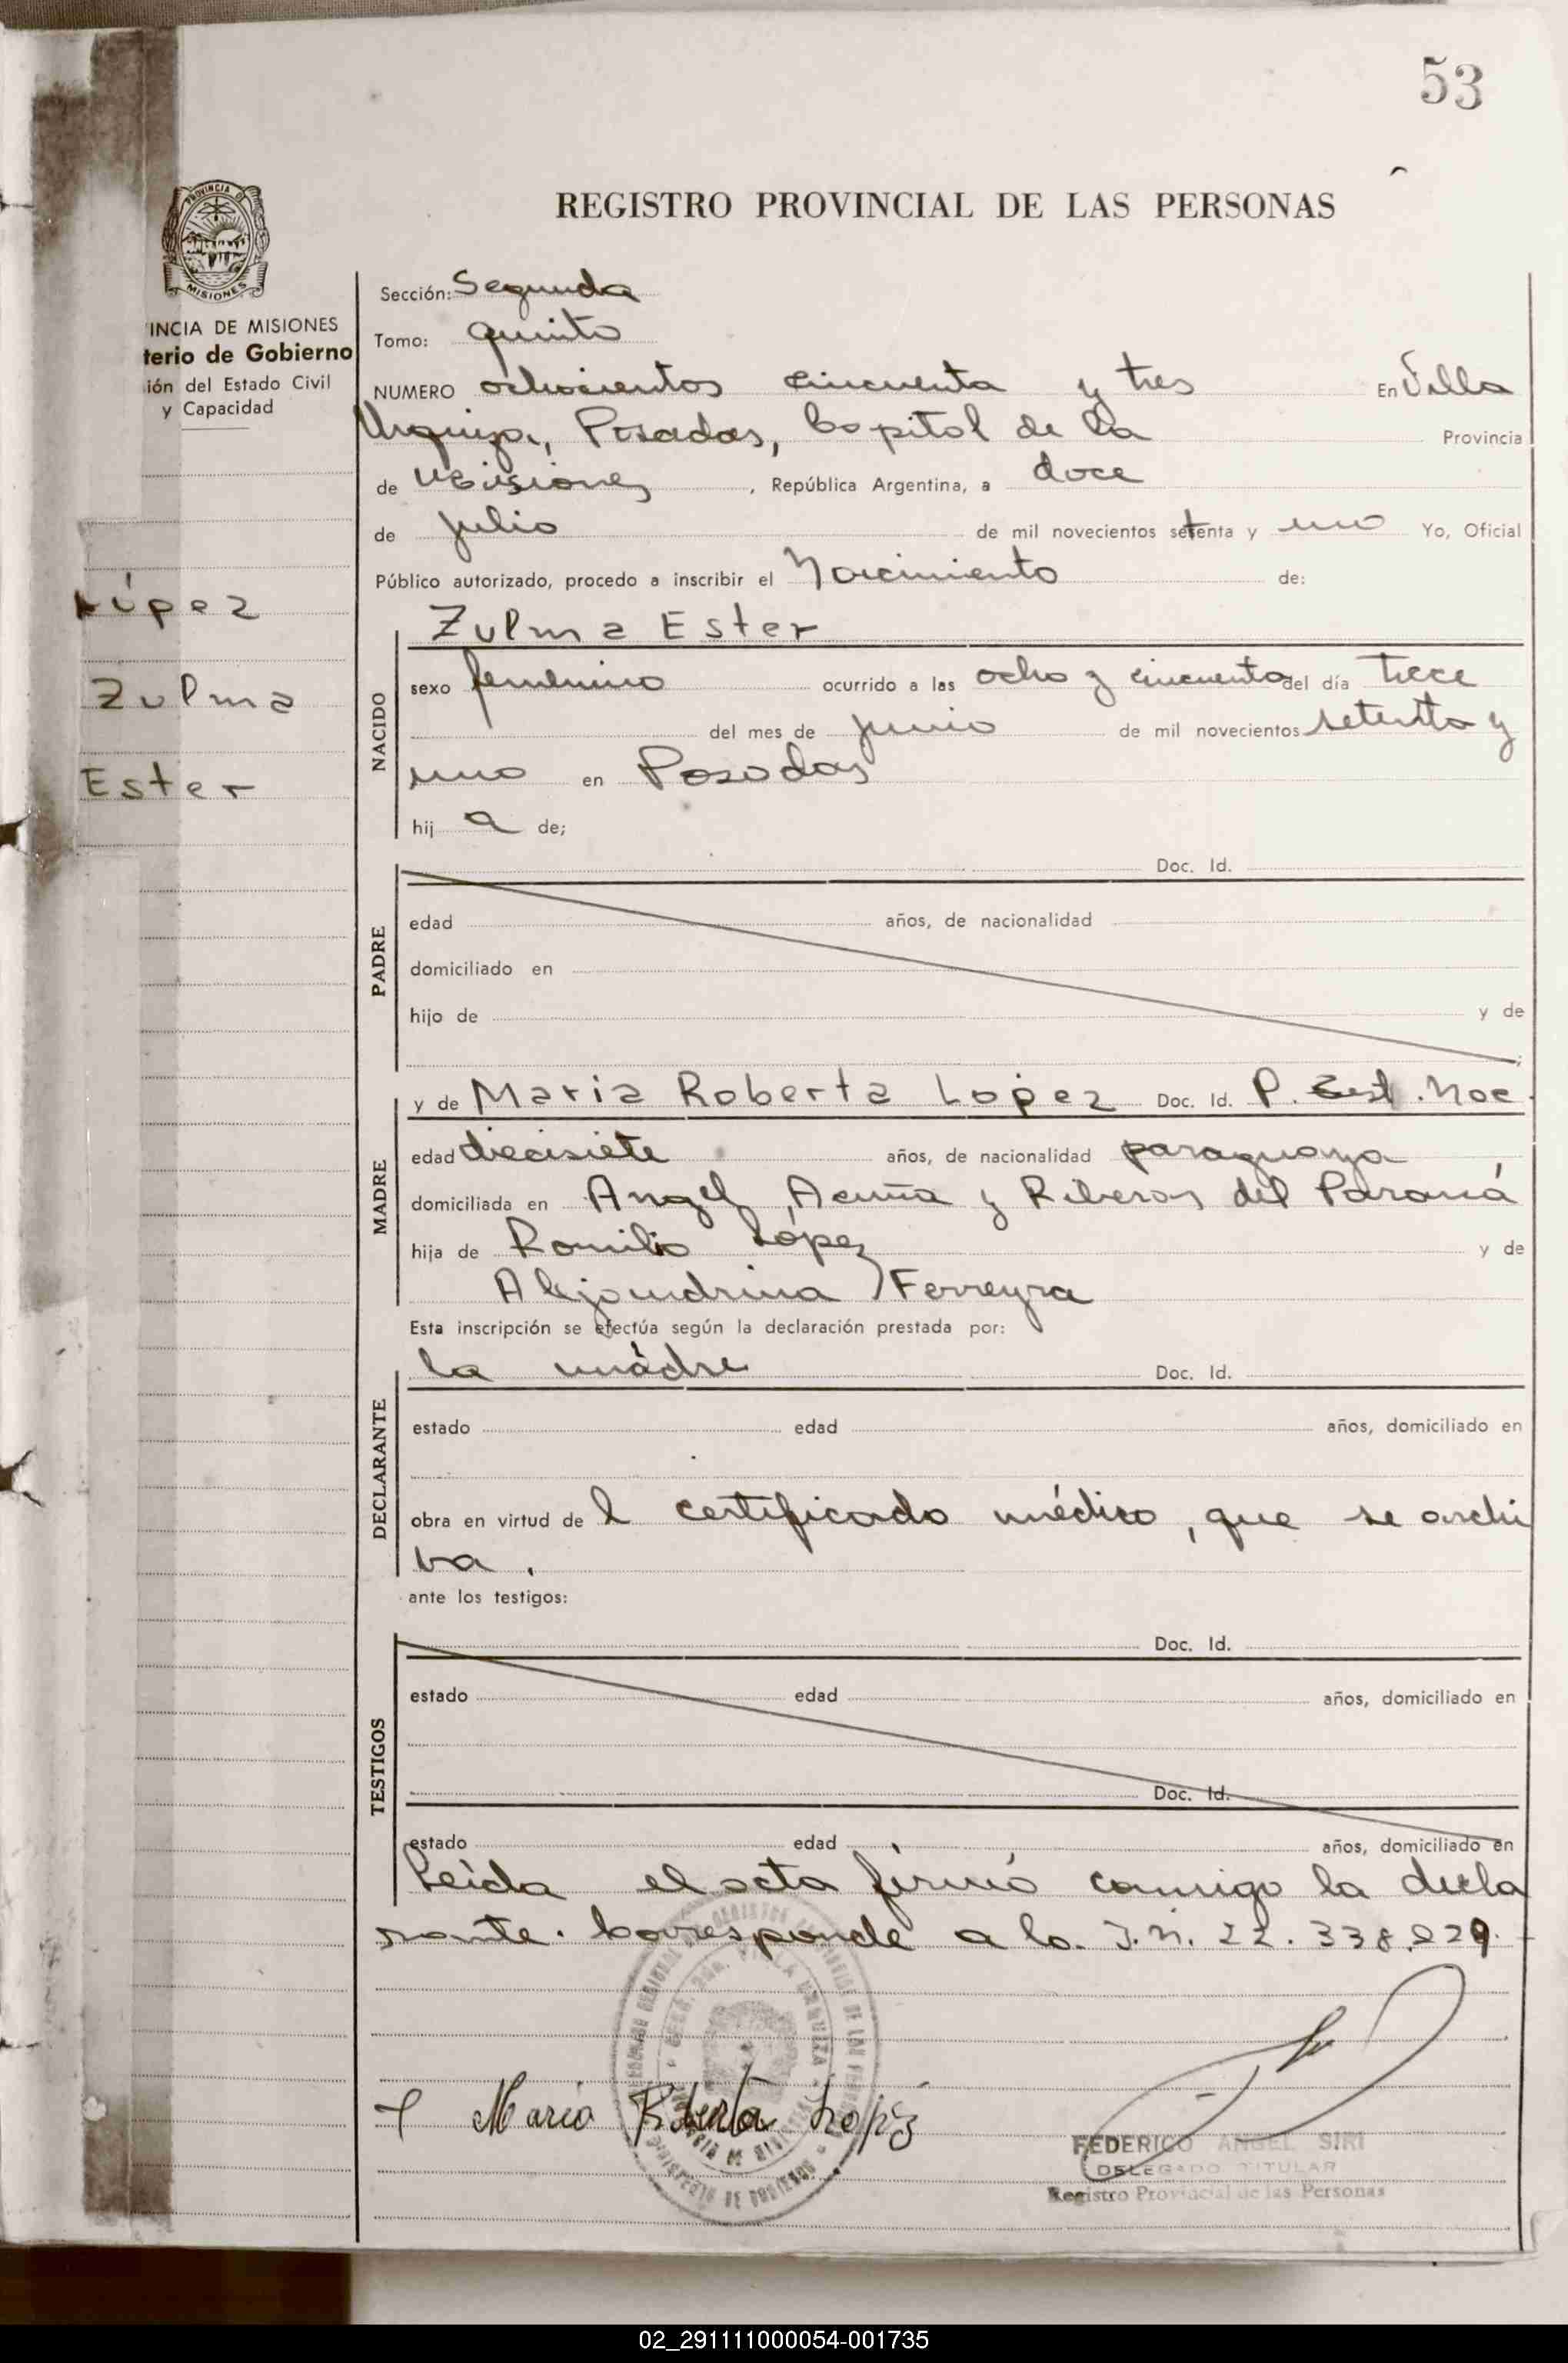 53
REGISTRO PROVINCIAL DE LAS PERSONAS
PROVINCIA DE
MISIONES
INCIA DE MISIONES
terio de Gobierno
ión del Estado Civil
y Capacidad
López
Zulma
Ester
Sección: Segunda
Tomo: quinto
NUMERO ochocientos cincuenta y tres En Villa
Urquiza, Posadas, Capital de la Provincia
de Misiones, República Argentina, a doce
de julio de mil novecientos setenta y uno Yo, Oficial
Público autorizado, procedo a inscribir el Nacimiento de:
NACIDO
Zulma Ester
sexo femenino ocurrido a las ocho y cincuenta del día trece
del mes de junio de mil novecientos setenta y
uno en Posadas
hij a de;
PADRE
Doc. Id.
edad años, de nacionalidad
domiciliado en
hijo de y de
;
MADRE
y de Maria Roberta Lopez Doc. Id. P. Est. Noc.
edad diecisiete años, de nacionalidad paraguaya
domiciliada en Angel Acuña y Riberas del Paraná
hija de Romilio López y de
Alejandrina Ferreyra
Esta inscripción se efectúa según la declaración prestada por:
DECLARANTE
la madre Doc. Id.
estado edad años, domiciliado en
obra en virtud de l certificado médico, que se archi
va.
ante los testigos:
TESTIGOS
Doc. Id.
estado edad años, domiciliado en
Doc. Id.
estado edad años, domiciliado en
Leída el acta firmó conmigo la decla
rante. Corresponde a la I.N. 22.338.229.
Maria Roberta Lopez
FEDERICO ANGEL SIRI
DELEGADO TITULAR
Registro Provincial de las Personas
02_291111000054-001735